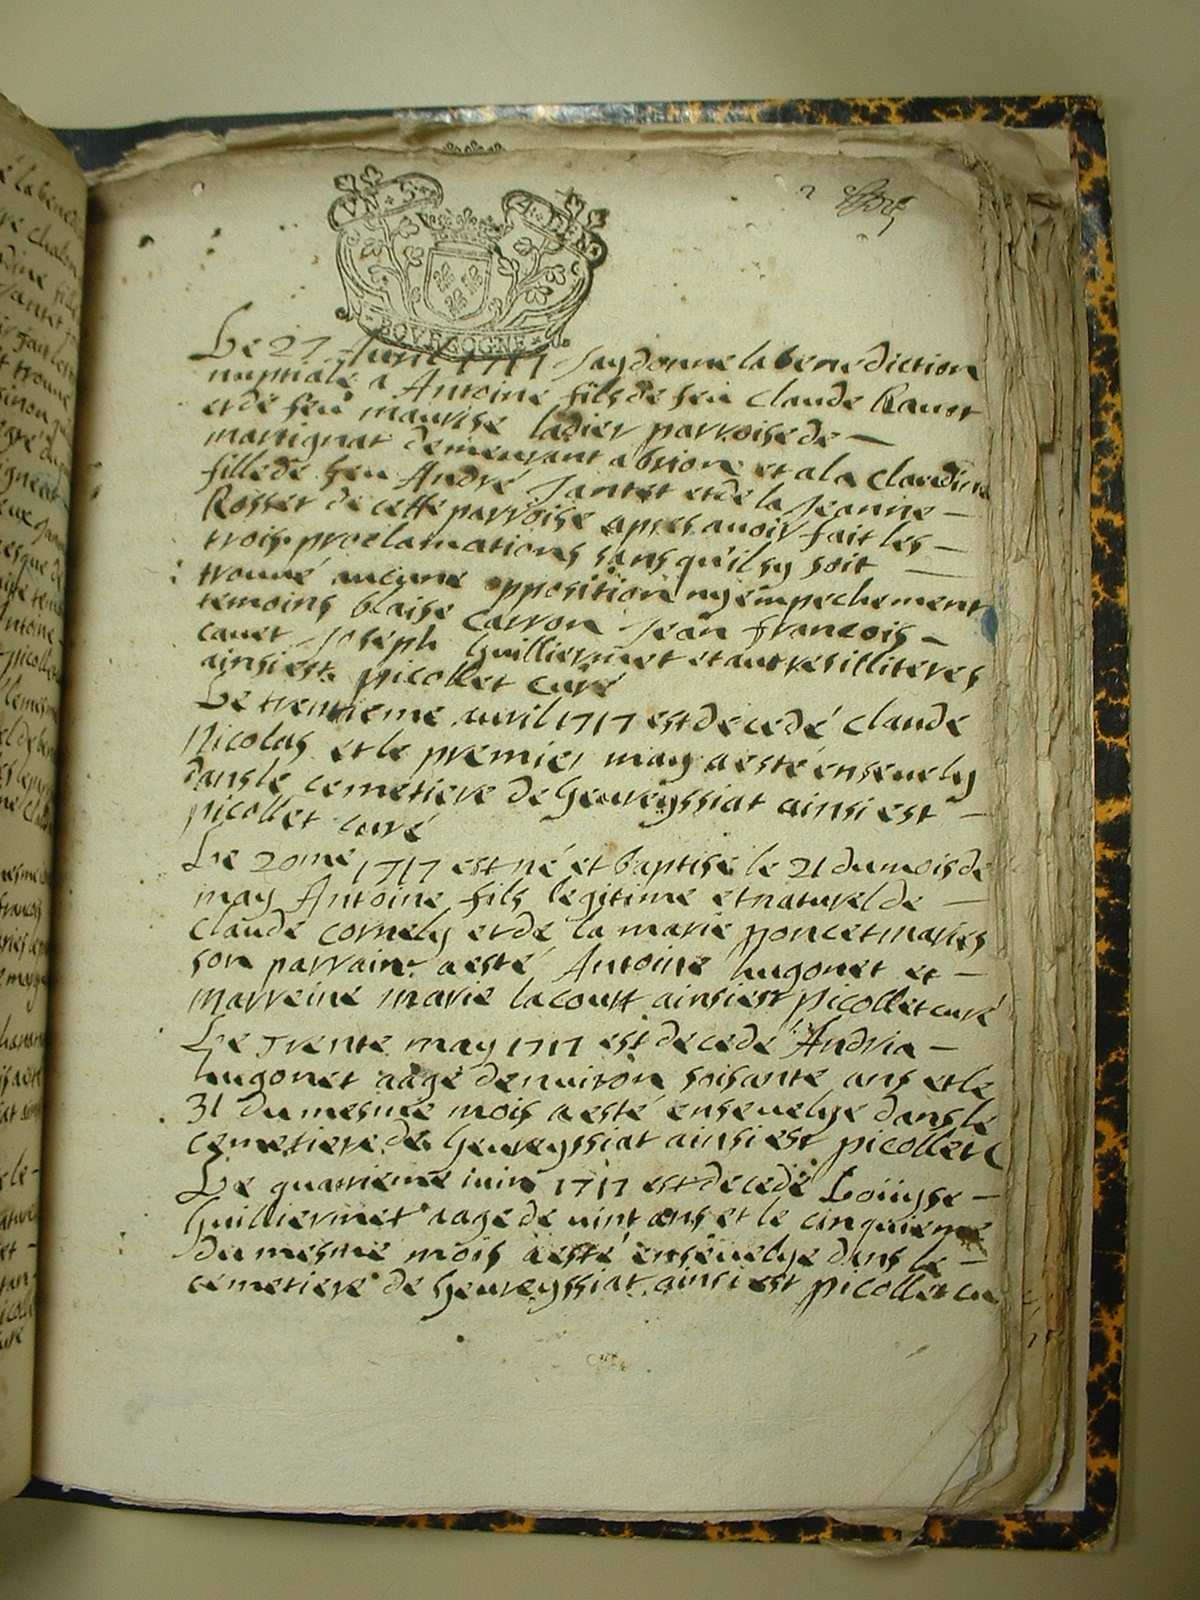 VN
A • DEN •
BOVRGOGNE
Le 27 Avril 1717 Jay donne la benediction
nuptiale a Antoine fils de feu Claude Ravet
et de feu maurise ladier parroise de —
martignat demeurant a brion et a la Claudine
fille de feu André Jantet et de la Jeanne —
Rosset de cette parroise apres avoir fait les —
trois proclamations sans qu'il sy soit —
trouué aucune opposition ny empechement
temoins blaise Carron Jean François —
cauet Joseph Guilliermet et autres illiteres
ainsi est picollet curé
Le trentieme auril 1717 est decedé Claude
Nicolas et le premier may a esté enseuely
dans le cemetiere de Geureyssiat ainsi est —
picollet curé
Le 20me 1717 est né et baptise le 21 du mois de
may Antoine fils legitime et naturel de —
Claude cornely et de la marie poncet maries
son parrain a esté Antoine hugonet et —
marreine marie lacour ainsi est picollet curé
Le Trente may 1717 est decede Andria —
hugonet aagé denuiron soisante ans et le
31 du mesme mois a esté enseuelye dans le
cemetiere de Geureyssiat ainsi est picollet C
Le quatrieme iuin 1717 est decede Loüyse —
Guilliermet aage de uint ans et le cinquieme
du mesme mois a esté enseuelye dans le —
cemetiere de Geureyssiat ainsi est picollet cu